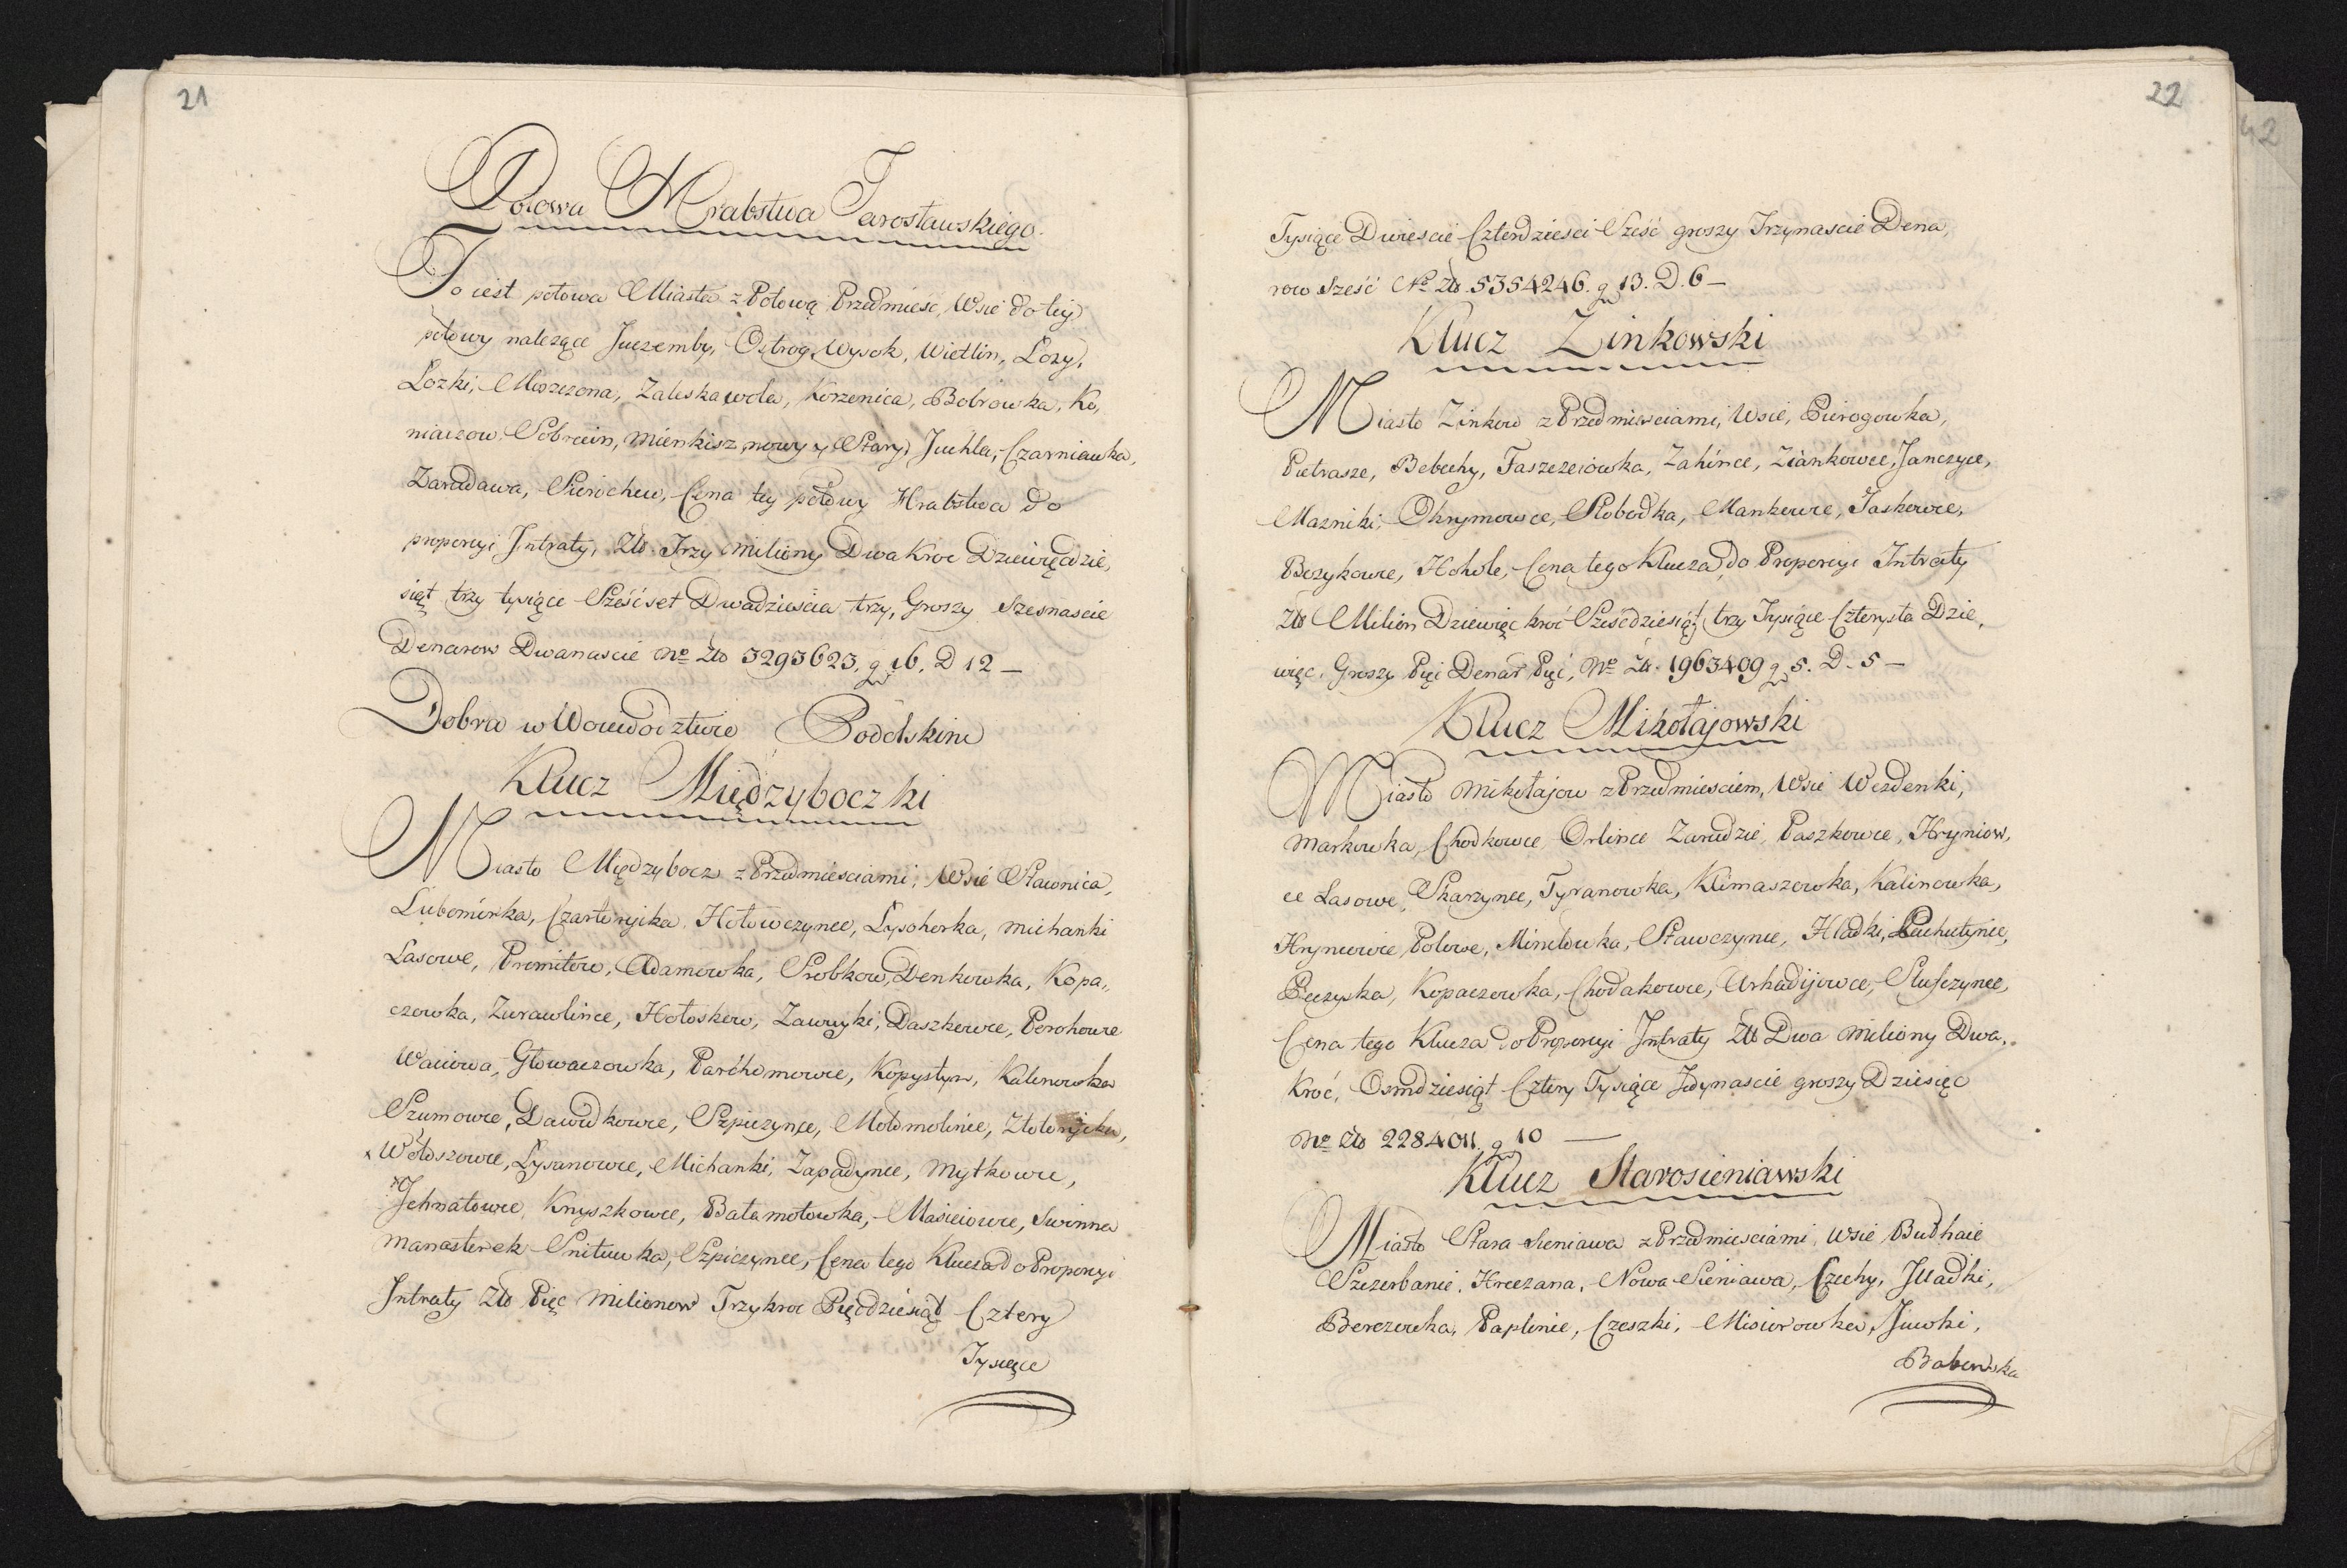 21
Połowa Hrabstwa Jarosławskiego
To iest połowa Miasta z Połową Przedmiesc, Wsie do tey
połowy nalezące Juczemby, Ostrog, Wysok, Wietlin, Lozy,
Lozki, Moszczona, Zaleskawola, Korzenica, Bobrowka, Ko,
niaczow Sobiecin, Mienkisz nowy y Stary, Juchla, Czarniawka,
Zarudawa, Surochow, Cena tey połowy Hrabstwa do
proporcyi Intraty, Zło Trzy miliony Dwa kroc Dziewięcdzie,
siąt trzy tysiące Sześcset Dwadziescia trzy, Groszy Szesnascie
Denarow Dwanascie No Zło 3293623, g 16, D 12 —
Dobra w Woiewodztwie Podolskim
Klucz Międzyboczki
Miasto Międzybocz z Przedmiesciami, Wsie Stawnica,
Lubomirka, Czartoryika, Hołowczynce, Lysohorka, Michanki
Lasowe, Promitow, Adamowka, Srobkow, Denkowka, Kopa,,
czowka, Zurawlince, Hołoskow, Zawuyki, Daszkowce, Porohowce
Waciowa, Głowaczowka, Parchomowce, Kopystyn, Kalinowka
Szumowce, Dawidkowce, Szpiczynce, Mołomolince,
Wołoszowce, Lysanowce, Michanki, Zapadynce, Mytkowce,
Jehnatowce Knyszkowce, Bałamotowka, Masieiowce, Swinna
Manasterek Snitowka, Szpiczynce, Cena tego Klucza do Proporcyi
Intraty Zło Pięc Milionow Trzykroc Pięcdziesiąt Cztery
Tysiące
22
Tysiące Dwieście Czterdziesci Sześć groszy Trzynascie Dena,
row Sześć No Zło. 5354246. g 13. D. 6 —
Klucz Zinkowski
Miasto Zinkow z Przedmiesciami, Wsie, Pierogowka,
Pietrasze, Bebechy, Faszczeiowka, Zahince, Ziankowce, Janczyce,
Mazniki, Okrymowce, Słobodka, Mankowce, Jaskowce,
Bozykowce, Hohole, Cena tego Klucza do Proporcyi Intraty
Zło Milion Dziewięc kroć Sześćdziesiąt trzy Tysiące Czterysta Dzie,
więc, Groszy Pięc Denar Pięć, No Zło. 1963409 g 5. D. 5 —
Klucz Mikołajowski
Miasto Mikołajow z Przedmiesciem, Wsie Wezdenki,
Markowka, Chodkowce Orlince Zarudzie, Paszkowce, Hryniow,
ce Lasowe, Skarzynce, Tyranowka, Klimaszowka, Kalinowka,
Hryniowce Polowe, Stawczynce, Hładki, Pachutynce,
Peczyska, Kopaczowka, Chodakowce, Arkadijowce, Słusczynce,
Cena tego Klucza do Proporcyi Intraty Zło Dwa Miliony Dwa,,
kroć, Osmdziesiąt Cztery Tysiące Jedynascie groszy Dziesięc
No Zło 2284011, g 10 —
Klucz Starosieniawski
Miasto Stara Sieniawa z Przedmiesciami, Wsie Budhaie
Szczerbanie, Hreczana, Nowa Sieniawa, Czechy, Jlladki,
Berezowka, Paplince, Czeszki, Misiorowka, Juwki,
Babinska
42